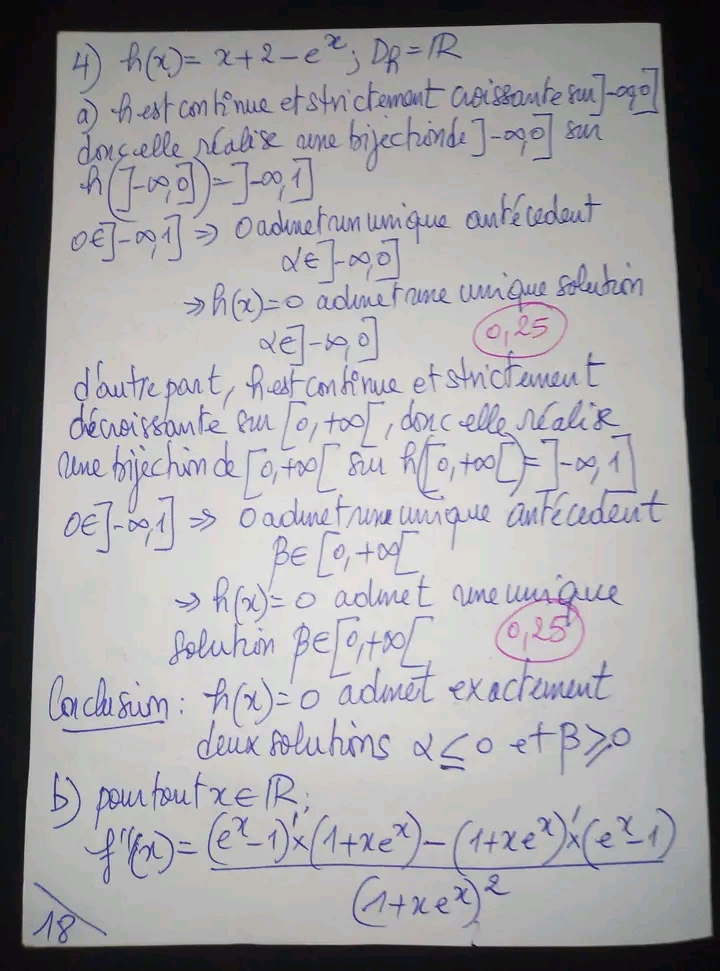 4) h(x) = x + 2 - e^x ; D_h = ℝ
a) h est continue et strictement croissante sur ]-∞,0]
donc elle réalise une bijection de ]-∞,0] sur
h(]-∞,0]) = ]-∞,1]
0∈]-∞,1] ⇒ 0 admet un unique antécedent
α∈]-∞,0]
⇒ h(x)=0 admet une unique solution
α∈]-∞,0]
0,25
d'autre part, h est continue et strictement
décroissante sur [0,+∞[, donc elle réalise
une bijection de [0,+∞[ sur h([0,+∞[)=]-∞,1]
0∈]-∞,1] ⇒ 0 admet une unique antécedent
β∈[0,+∞[
⇒ h(x)=0 admet une unique
solution β∈[0,+∞[
0,25
Conclusion : h(x)=0 admet exactement
deux solutions α≤0 et β≥0
b) pour tout x∈ℝ;
f'(x) = ((e^x-1)'×(1+xe^x)-(1+xe^x)'×(e^x-1))/(1+xe^x)^2
18